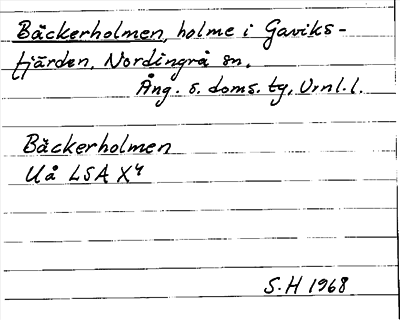 Bäckerholmen, holme i Gaviks-
fjärden, Nordingrå sn,
Ång. s. doms. tg, Vrnl.l.
Bäckerholmen
Uå LSA X4
S.H 1968